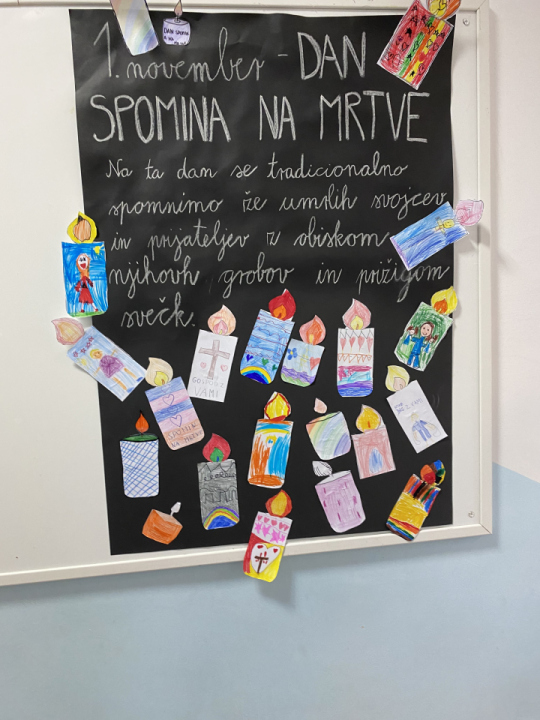 1. november - DAN
SPOMINA NA MRTVE
Na ta dan se tradicionalno
spomnimo že umrlih svojcev
in prijateljev z obiskom
njihovh grobov in prižigom
svečk.
DAN SPOMINA
GOSPOD Z
VAMI
SPOMIN
NA MRTVE